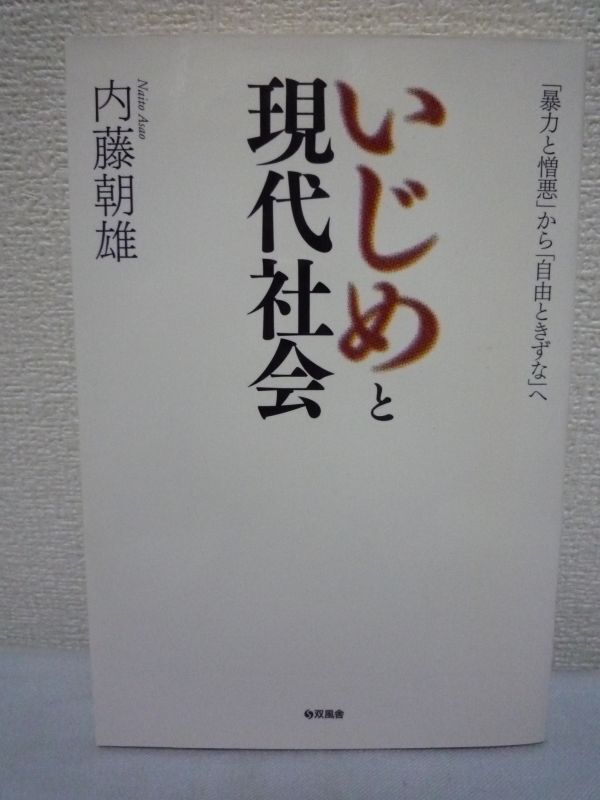 「暴力と憎悪」から「自由ときずな」へ
いじめと
現代社会
Naito Asao
内藤朝雄
双風舎